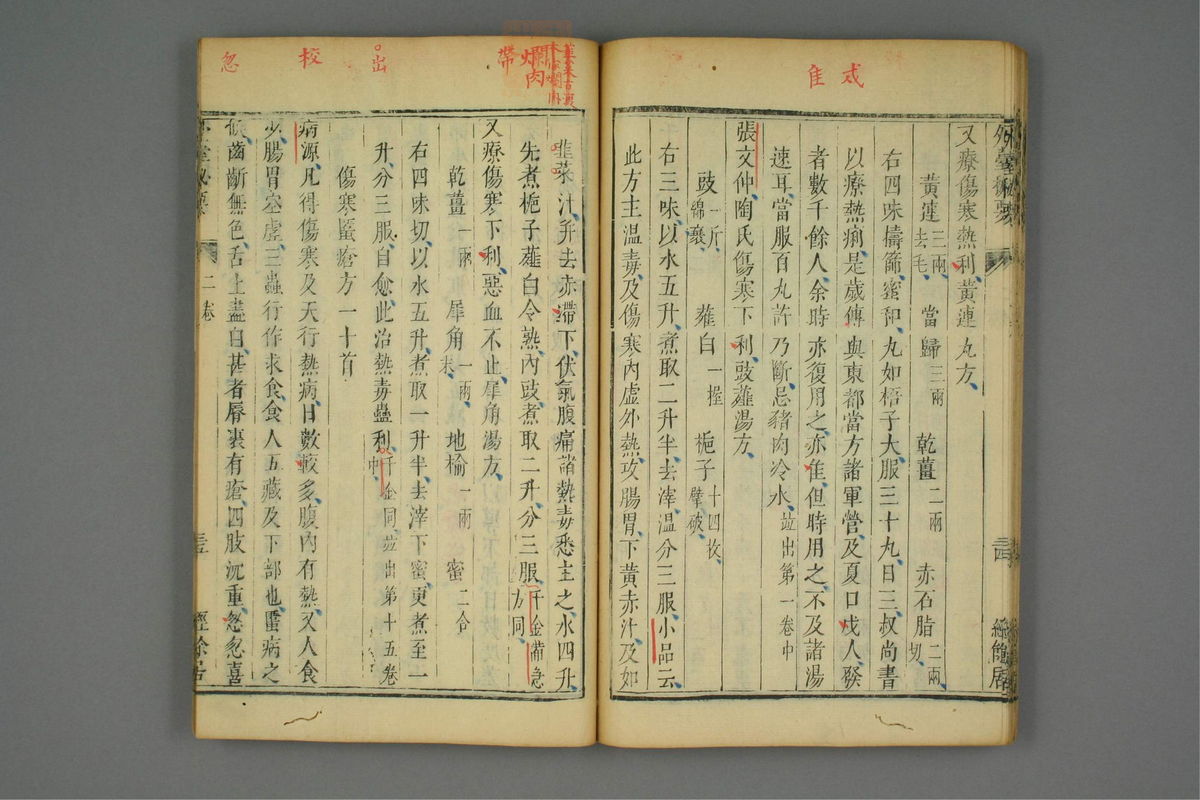 戎 隹
外臺秘要
又療傷寒熱利黃連丸方
黃連三兩去毛 當歸三兩 乾薑二兩 赤石脂二兩切
右四味擣篩蜜和丸如梧子大服三十丸日三叔尚書
以療熱痢是歲傳與東都當方諸軍營及夏口戍人發
者數千餘人余時亦復用之亦隹但時用之不及諸湯
速耳當服百丸許乃斷忌豬肉冷水竝出第一卷中
張文仲陶氏傷寒下利豉薤湯方
豉一斤綿裹 薤白一握 梔子十四枚擘破
右三味以水五升煮取二升半去滓溫分三服小品云
此方主溫毒及傷寒內虛外熱攻腸胃下黃赤汁及如
爛肉
帶
出
校
忽
韭菜汁升去赤滯下伏氣腹痛諸熱毒悉主之水四升
先煮梔子薤白令熟內豉煮取二升分三服千金備急方同
又療傷寒下利惡血不止犀角湯方
乾薑一兩 犀角一兩末 地榆一兩 蜜二合
右四味切以水五升煮取一升半去滓下蜜更煮至一
升分三服自愈此治熱毒蠱利千金同竝出第十五卷中
傷寒䘌瘡方一十首
病源凡得傷寒及天行熱病日數較多腹內有熱又人食
少腸胃空虛三蟲行作求食食人五藏及下部也䘌病之
候齒齗無色舌上盡白甚者脣裏有瘡四肢沉重忽忽喜
二卷
經餘居